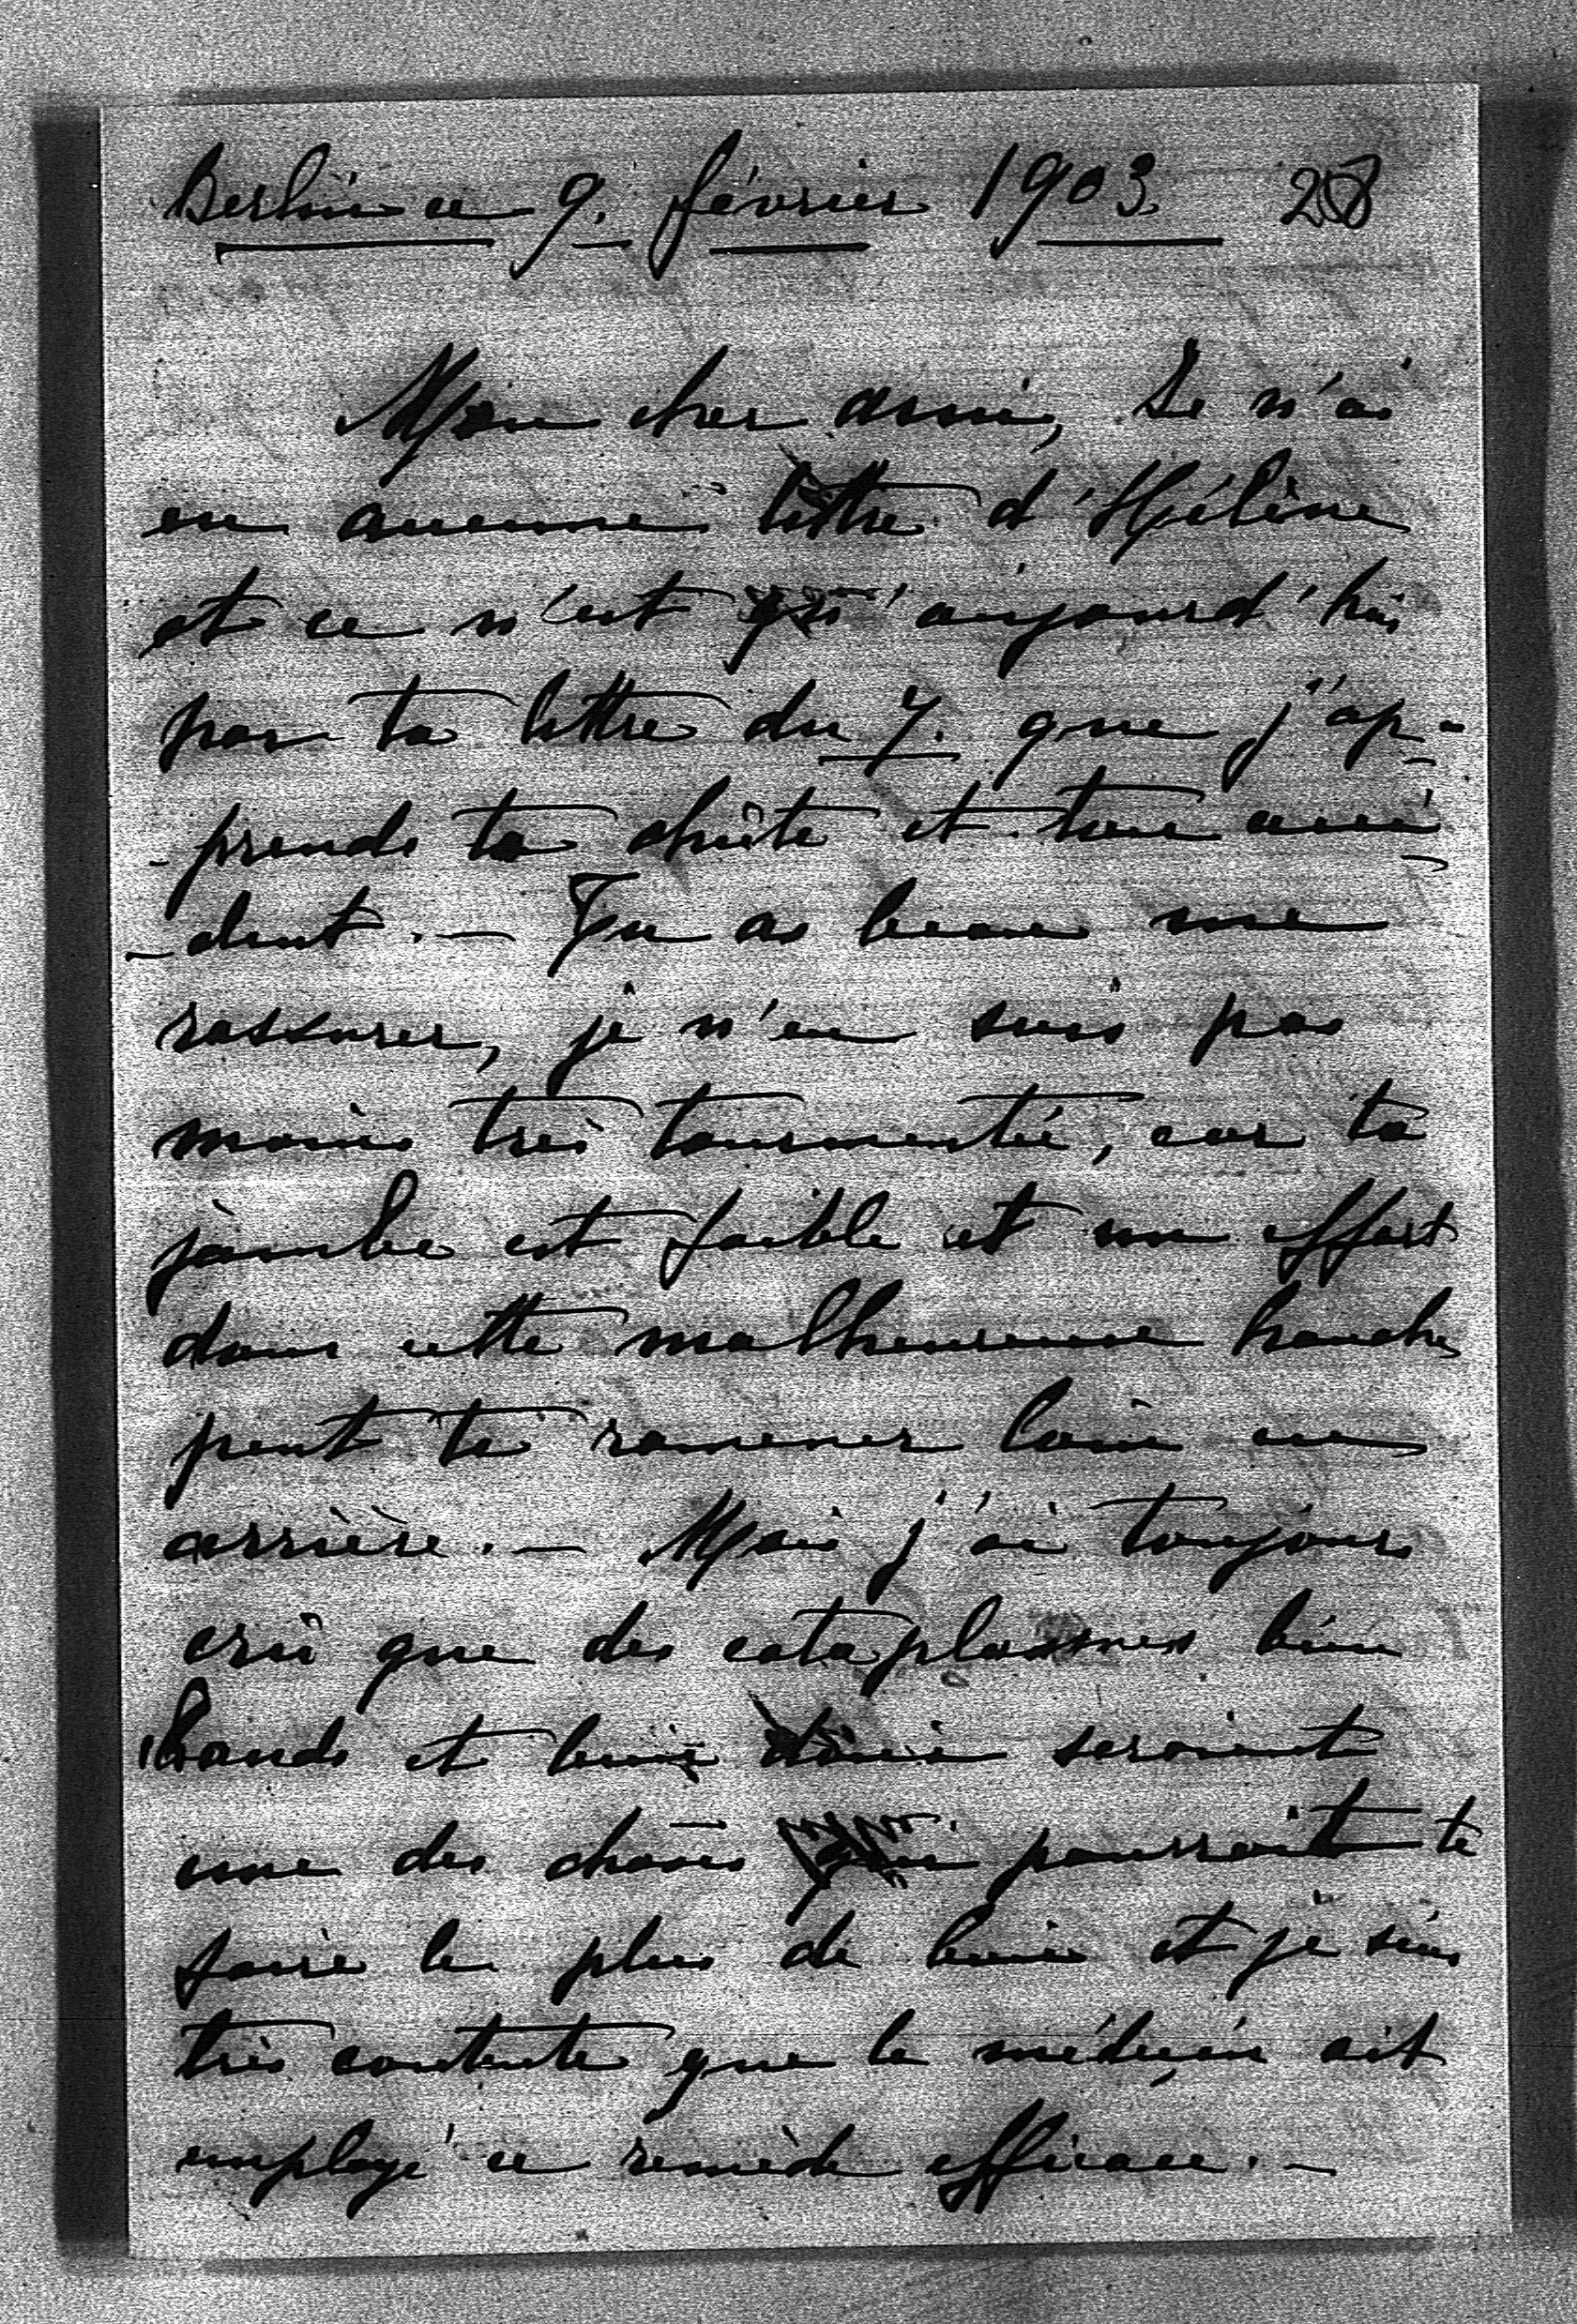 Berlin ce 9. février 1903.
Mon cher ami, Je n'ai
eu aucune lettre d'Hélène
et ce n'est qu'aujourd'hui
par ta lettre du 7. que j'ap-
-prends ta chûte et ton acci-
-dent. — Tu as beau me
rassurer, je n'en suis pas
moins très tourmentée, car ta
jambe est faible et un effort
dans cette malheureuse hanche
peut te ramener loin en
arrière. — Mais j'ai toujours
crû que des cataplasmes bien
chauds et bien seraient
une des choses qui pourrait te
faire le plus de bien et je suis
très contente que le médecin ait
employé ce remède efficace. —